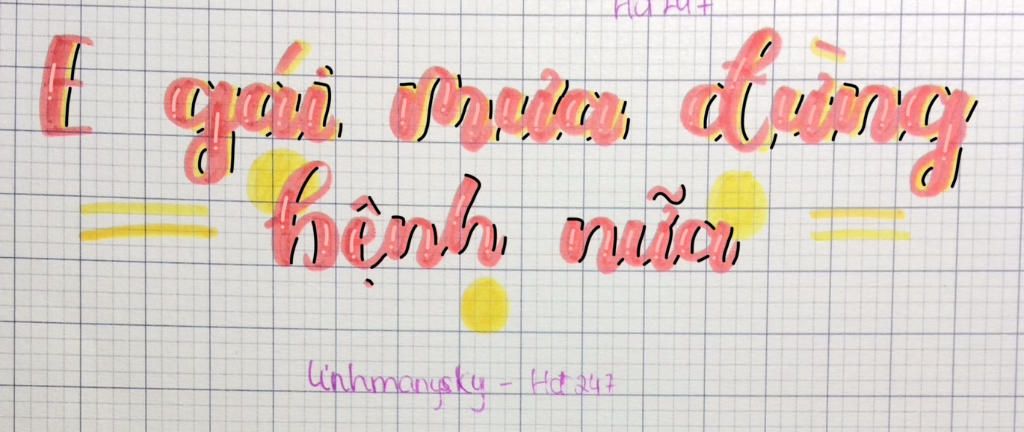 Hd 247
E gái mưa đừng
bệnh nữa
linhmarysky - Hd 247